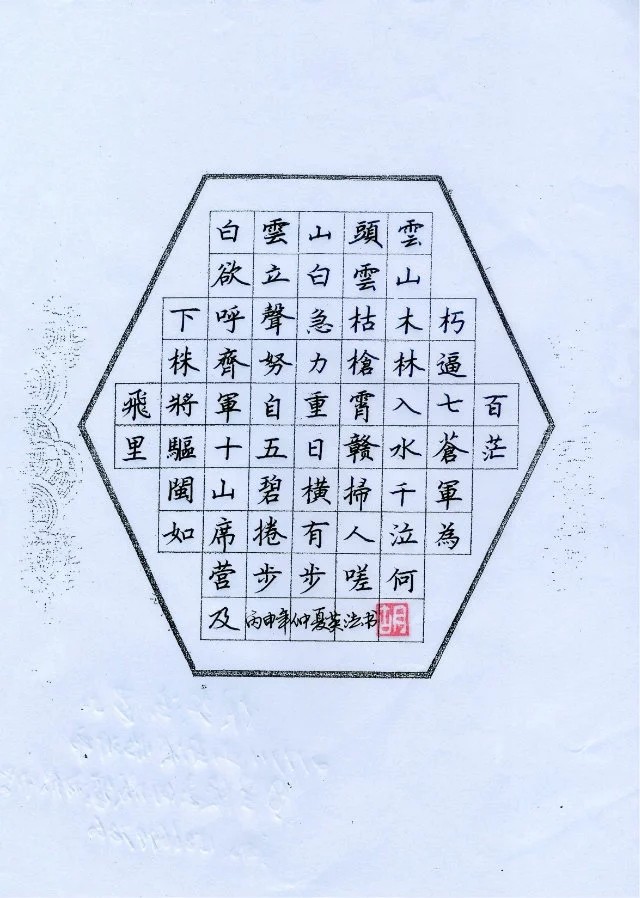 白雲山頭雲
欲立白雲山
下呼聲急枯木朽
株齊努力槍林逼
飛將軍自重霄入七百
里驅十五日赣水蒼茫
閩山碧橫掃千軍
如席捲有人泣為
营步步嗟何
及丙申年仲夏英法书胡